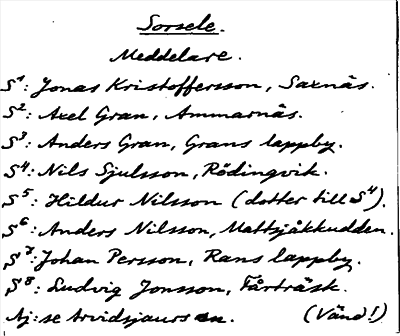 Sorsele.
Meddelare.
S¹: Jonas Kristoffersson, Saxnäs.
S²: Axel Gran, Ammarnäs.
S³: Anders Gran, Grans lappby.
S⁴: Nils Sjulsson, Rödingvik.
S⁵: Hildur Nilsson (dotter till S⁴).
S⁶: Anders Nilsson, Mattsjåkkudden.
S⁷: Johan Persson, Rans lappby.
S⁸: Ludvig Jonsson, Fårträsk.
Aj: se Arvidsjaurs (Vänd!)